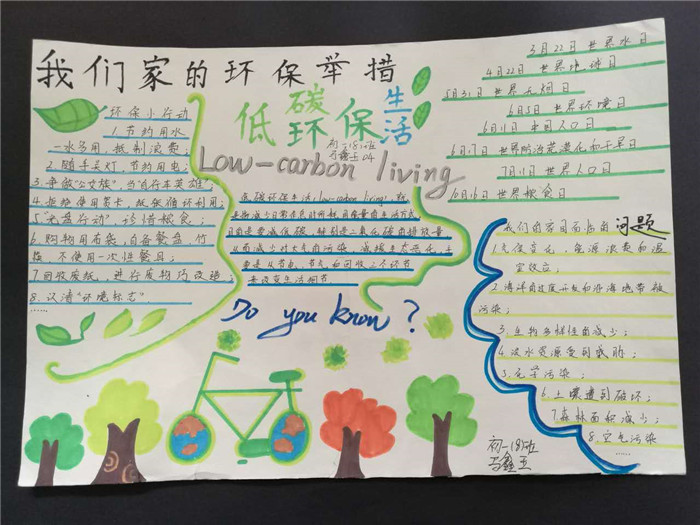 我们家的环保举措
低碳环保生活
初一18班
马鑫玉 04
Low-carbon living
环保小行动
1.节约用水
一水多用,抵制浪费;
2.随手关灯,节约用电;
3.争做"公交族",当"自行车英雄";
4.拒绝使用贺卡,纸张循环利用;
5."光盘行动",珍惜粮食;
6.购物用布袋,自备餐盘,竹
筷,不使用一次性餐具;
7.回收废纸,进行废物巧改造;
8.认清"环境标志"
......
低碳环保生活(low-carbon living),就
是指减少日常作息时所耗用能量的生活方式
目的是要减低碳,特别是二氧化碳的排放量
从而减少对大气的污染,减缓生态恶化,主
要是从节电、节气和回收三个环节
来改变生活细节
Do you know?
3月22日 世界水日
4月22日 世界地球日
5月31日 世界无烟日
6月5日 世界环境日
6月11日 中国人口日
6月17日 世界防治荒漠化和干旱日
7月11日 世界人口日
10月16日 世界粮食日
我们的家园面临的问题
1.气候变化,能源浪费和温
室效应;
2.海洋的过度开发和沿海地带被
污染;
3.生物多样性的减少;
4.淡水资源受到威胁;
5.化学污染;
6.土壤遭到破坏;
7.森林面积减少;
8.空气污染
......
初一18班
马鑫玉